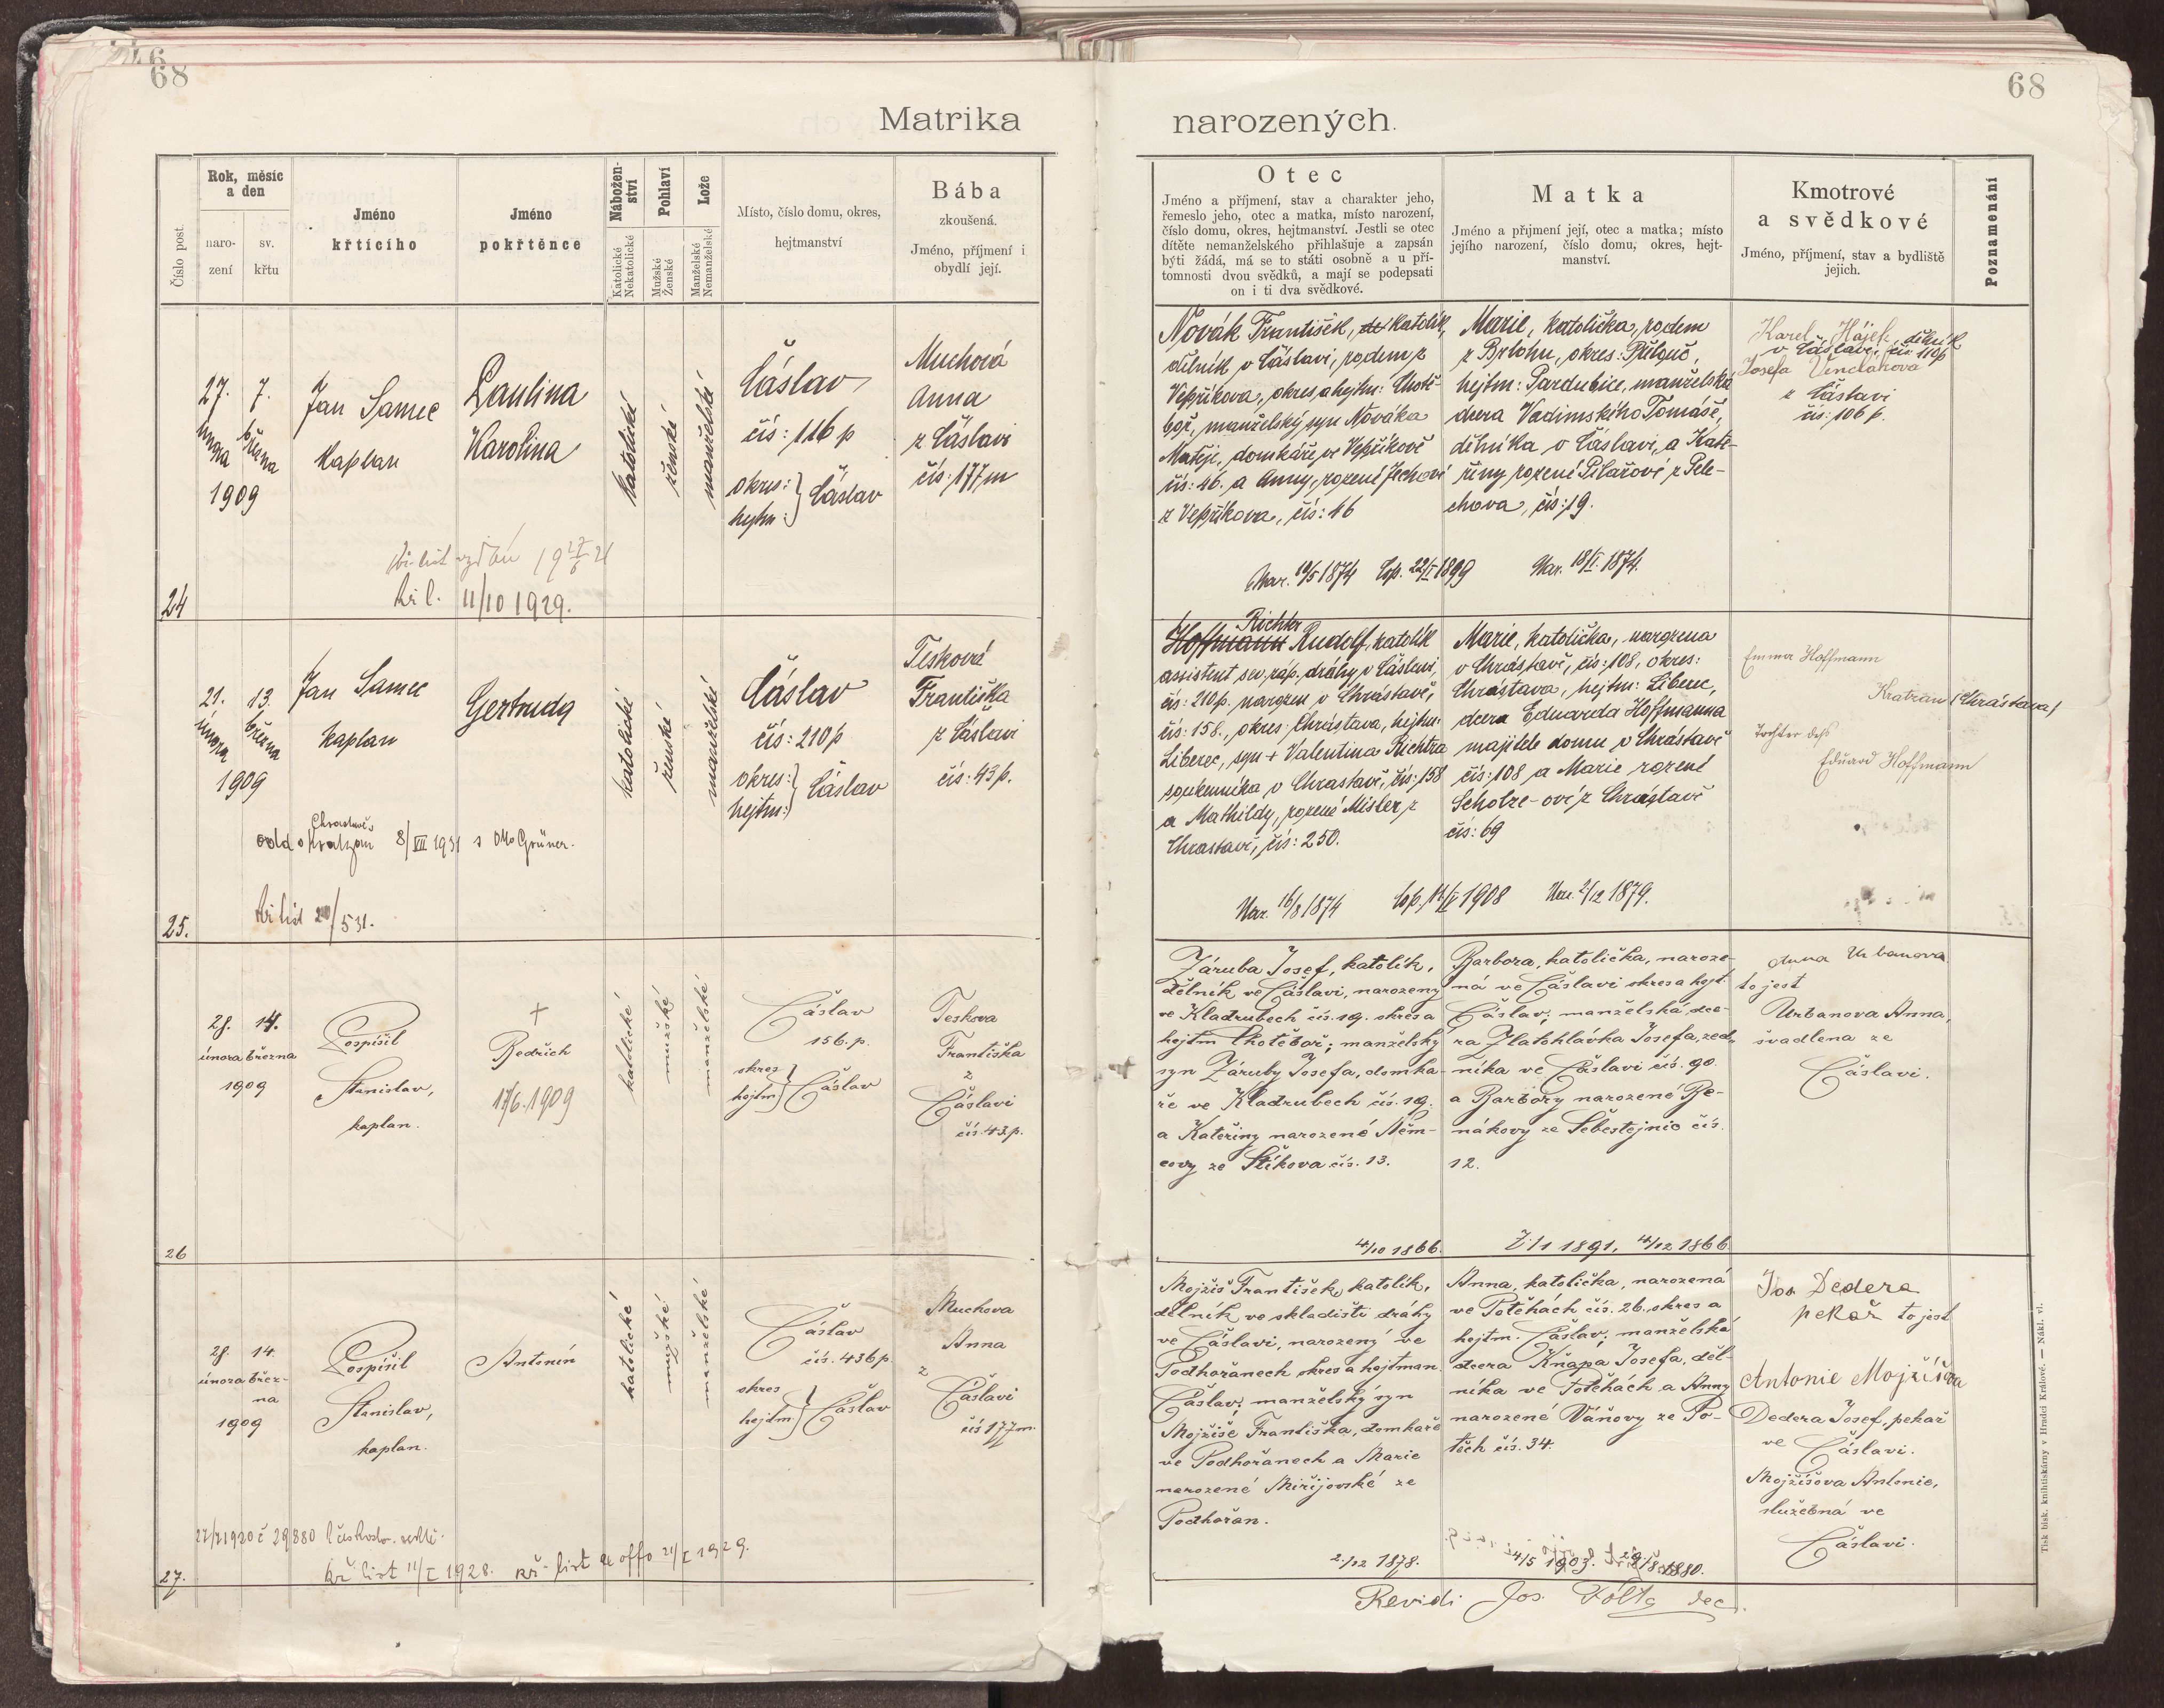 68
68
Matrika narozených.
Číslo post.
Rok, měsíc
a den
naro-
zení
sv.
křtu
Jméno
křtícího
Jméno
pokřtěnce
Nábožen-
ství
Katolické
Nekatolické
Pohlaví
Mužské
Ženské
Lože
Manželské
Nemanželské
Místo, číslo domu, okres,
hejtmanství
Bába
zkoušená.
Jméno, příjmení i
obydlí její.
Otec
Jméno a příjmení, stav a charakter jeho,
řemeslo jeho, otec a matka, místo narození,
číslo domu, okres, hejtmanství. Jestli se otec
dítěte nemanželského přihlašuje a zapsán
býti žádá, má se to státi osobně a u pří-
tomnosti dvou svědků, a mají se podepsati
on i ti dva svědkové.
Matka
Jméno a příjmení její, otec a matka; místo
jejího narození, číslo domu, okres, hejt-
manství.
Kmotrové
a svědkové
Jméno, příjmení, stav a bydliště
jejich.
Poznamenání
24
27.
února
7.
března
1909
Jan Samec
kaplan
Paulina
Karolina
katolické
ženské
manželské
Čáslav
čís: 116 p
okres:
hejtm:
Čáslav
Muchová
Anna
z Čáslavi
čís: 177 m
Novák František, katolík,
dělník v Čáslavi, rodem z
Vepříkova, okres, a hejtm: Chotě-
boř, manželský syn Nováka
Matěje, domkáře ve Vepříkově
čís: 46. a Anny, rozené Jechové
z Vepříkova, čís: 46
Nar. 10/5 1874 Cop. 22/1 1899
Marie, katolička, rodem
z Brlohu, okres: Přelouč,
hejtm: Pardubice, manželská
dcera Vadinského Tomáše,
dělníka v Čáslavi, a Kate-
řiny, rozené Pilařové z Pele-
chova, čís: 19.
Nar. 18/I. 1874.
Karel Hájek, dělník
v Čáslavi, čís: 110 p
Josefa
z Čáslavi
čís: 106 p.
Kř. list vydán
Kř l. 11/10 1929.
25.
21.
února
13.
března
1909
Jan Samec
kaplan
Gertruda
katolické
ženské
manželské
Čáslav
čís: 210 p
okres:
hejtm:
Čáslav
Tesková
Františka
z Čáslavi
čís: 43 p.
Richter
Hoffmann Rudolf, katolík
assistent sev. záp. dráhy v Čáslavi,
čís: 210 p. narozen v Chrástavě,
čís: 158., okres, Chrástava, hejtm:
Liberec, syn + Valentina Richtra
soukenníka v Chrastavě, čís: 158
a Mathildy, rozené Misler z
Chrastavě, čís: 250.
Nar. 16/8 1874
Marie, katolička, narozena
v Chrástavě, čís: 108, okres:
Chrástava, hejtm: Liberec,
dcera Eduarda Hoffmanna
majitele domu v Chrástavě
čís: 108 a Marie rozené
Scholze-ové z Chrástavě
čís: 69
Nar. 2/12 1879.
Emma Hoffmann
Kratzau (Chrástava)
Tochter des
Eduard Hoffmann
odd. 8/VII 1931 s Otto Grüner.
kř. list 20/5 31.
26
28.
února
14.
března
1909
Pospíšil
Stanislav,
kaplan.
+
Bedřich
17/6. 1909
katolické
mužské
manželské
Čáslav
156. p.
okres
hejtm
Čáslav
Teskova
Františka
z
Čáslavi
čís. 43. p.
Záruba Josef, katolík,
dělník ve Čáslavi, narozený
ve Kladrubech čís. 19. okres a
hejtm Chotěboř; manželský
syn Záruby Josefa, domka-
ře ve Kladrubech čís. 19.
a Kateřiny narozené Něm-
covy ze Štikova čís. 13.
4/10 1866.
Barbora, katolička, naroze-
ná ve Čáslavi okres a hejt.
Čáslav; manželská dce-
ra Zlatohlávka Josefa, zed-
níka ve Čáslavi čís. 90.
a Barbory narozené Be-
nákovy ze Šebestejnic čís.
12.
1891, 4/12 1866.
Anna Urbanova
to jest
Urbanova Anna,
švadlena ze
Čáslavi.
27.
28.
února
14.
břez-
na
1909
Pospíšil
Stanislav,
kaplan.
Antonín
katolické
mužské
manželské
Čáslav
čís. 436 p.
okres
hejtm
Čáslav
Muchova
Anna
z
Čáslavi
čís 177 m.
Mojžiš František, katolík,
dělník ve skladišti dráhy
ve Čáslavi, narozený ve
Podhořanech okres a hejtman.
Čáslav; manželský syn
Mojžiše Františka, domkaře
ve Podhořanech a Marie
narozené Miřijovské ze
Podhořan.
2/12 1878.
Anna, katolička, narozená
ve Potěhách čís. 26. okres a
hejtm. Čáslav; manželská
dcera Kňapa Josefa, děl-
níka ve Potěhách a Anny
narozené Váňovy ze Po-
těch čís. 34.
4/5 1903. 29/8 1880.
Jos Dedera
pekař to jest
Antonie Mojžíšova
Dedera Josef, pekař
ve Čáslavi.
Mojžíšova Antonie,
služebná ve
Čáslavi.
27/7 1920 č 29880
kř. list 11/I 1928. kř. list ex offo 21/I 1929.
Revidi Jos. Fólta dec.
Tisk bisk. knihtiskárny v Hradci Králové. — Nákl. vl.